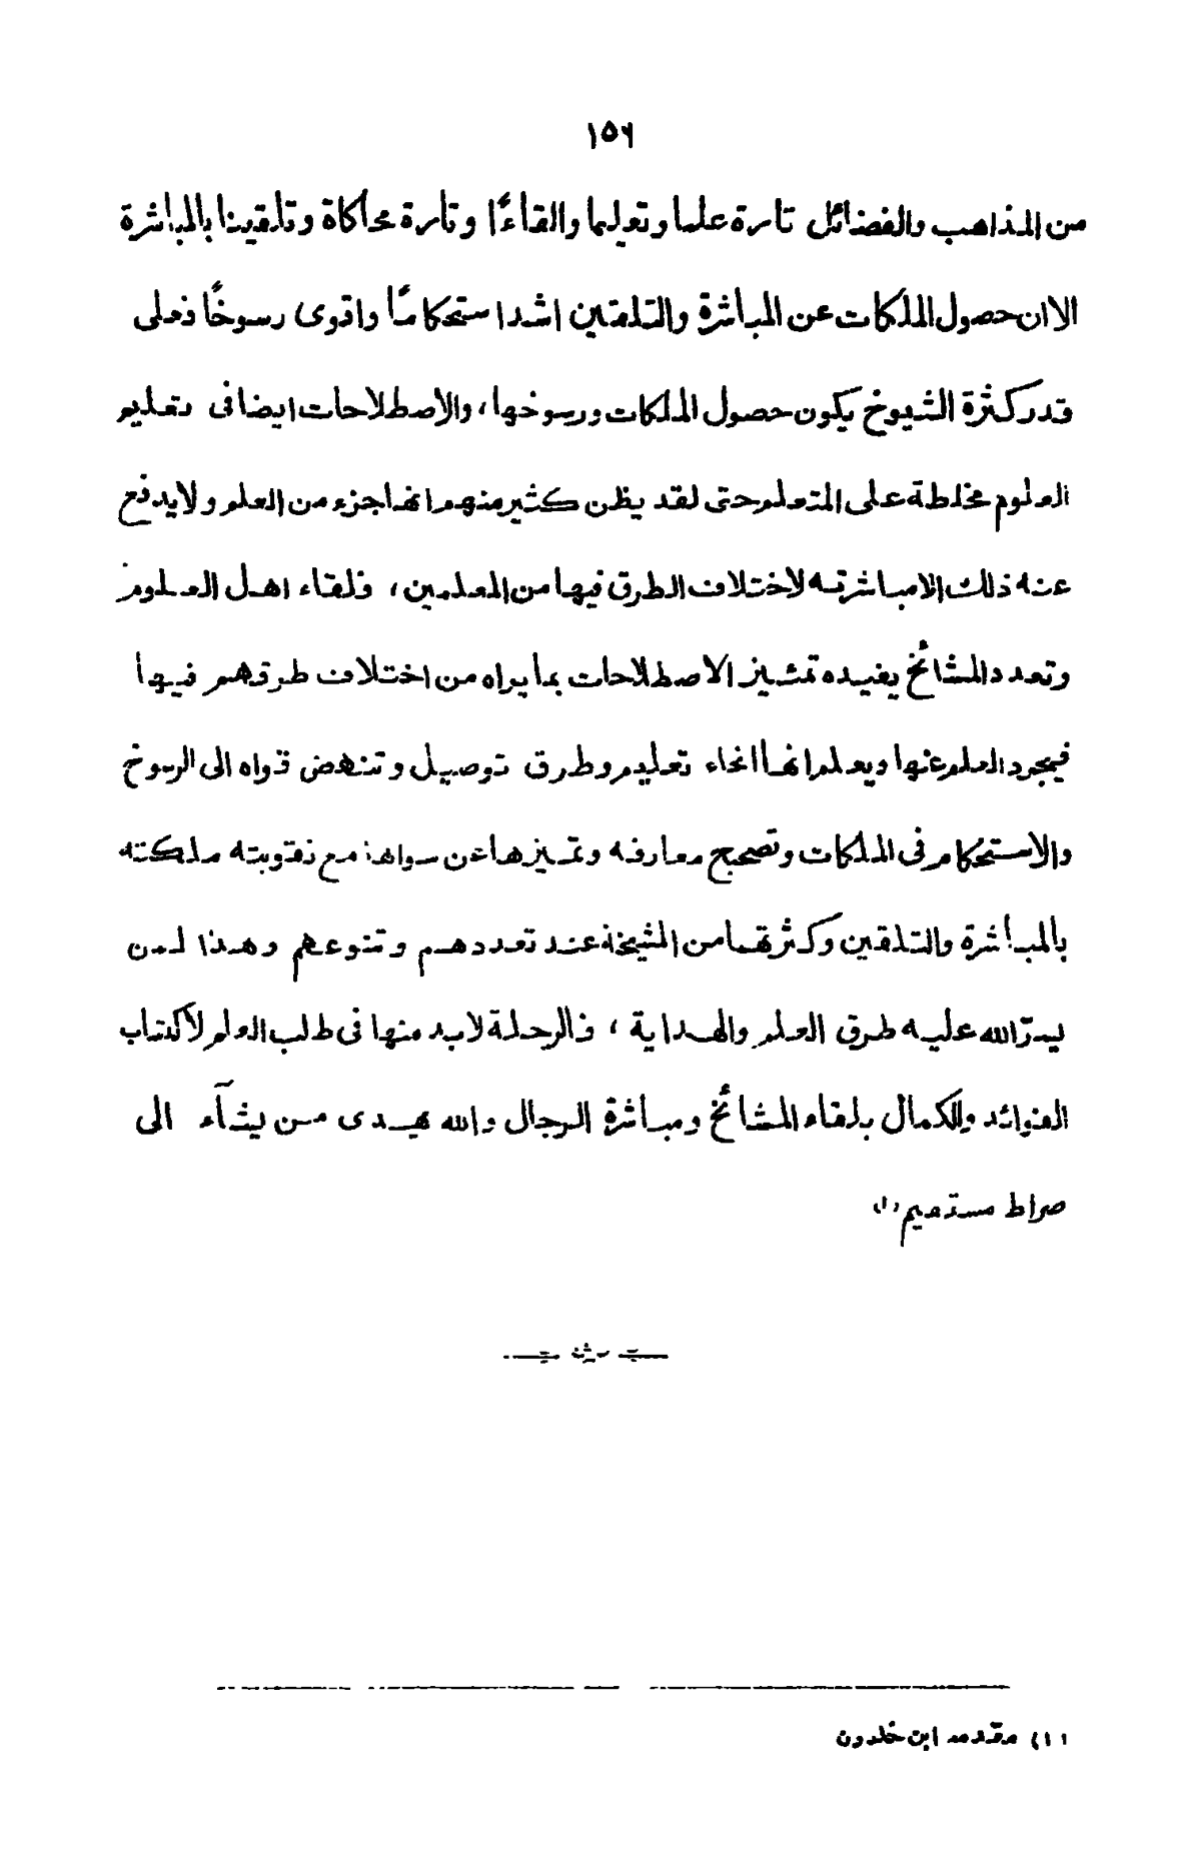 ١٥٦
من المذاهب والفضائل تارة علما وتعليما والقاءً ا وتارة محاكاة وتلقينا بالمباشرة
الا ان حصول الملكات عن المباشرة والتلقين اشد استحكاماً واقوى رسوخًا فعلى
قدر كثرة الشيوخ يكون حصول الملكات ورسوخها، والاصطلاحات ايضا فى تعليم
العلوم مخلطة على المتعلم حتى لقد يظن كثير منهم انها جزء من العلم ولا يدفع
عنه ذلك الا مباشرته لاختلاف الطرق فيها من المعلمين، فلقاء اهل العلوم
وتعدد المشائخ يفيده تمييز الاصطلاحات بما يراه من اختلاف طرقهم فيها
فيجرد العلم عنها ويعلم انها انحاء تعليم وطرق توصيل وتنهض قواه الى الرسوخ
والاستحكام فى الملكات وتصحيح معارفه وتميزها عن سواها مع تقويته ملكته
بالمباشرة والتلقين وكثرتهما من المشيخة عند تعددهم وتنوعهم وهذا لمن
يسرّ الله عليه طرق العلم والهداية، فالرحلة لابد منها فى طلب العلم لاكتساب
الفوائد والكمال بلقاء المشائخ ومباشرة الرجال والله يهدى من يشآء الى
صراط مستقيم (١)
(١) مقدمه ابن خلدون